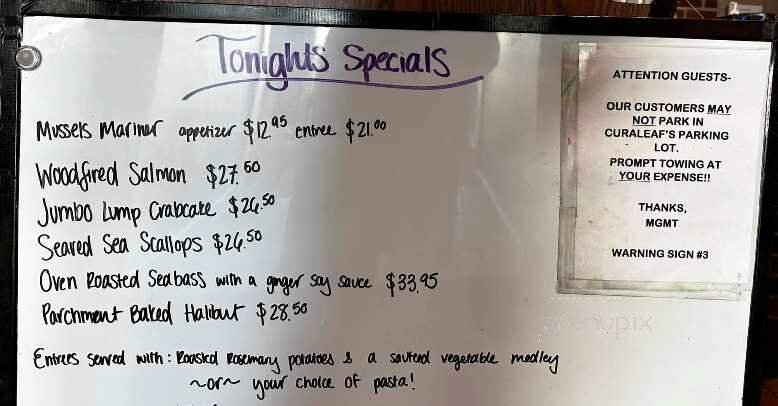 Tonights Specials
Mussels Mariner appetizer $12.95 entree $21.00
Woodfired Salmon $27.50
Jumbo Lump Crabcake $26.50
Seared Sea Scallops $26.50
Oven Roasted Seabass with a ginger soy sauce $33.95
Parchment Baked Halibut $28.50
Entrees served with: Roasted Rosemary potatoes & a sauteed vegetable medley
~or~ your choice of pasta!
ATTENTION GUESTS-
OUR CUSTOMERS MAY
NOT PARK IN
CURALEAF'S PARKING
LOT.
PROMPT TOWING AT
YOUR EXPENSE!!
THANKS,
MGMT
WARNING SIGN #3